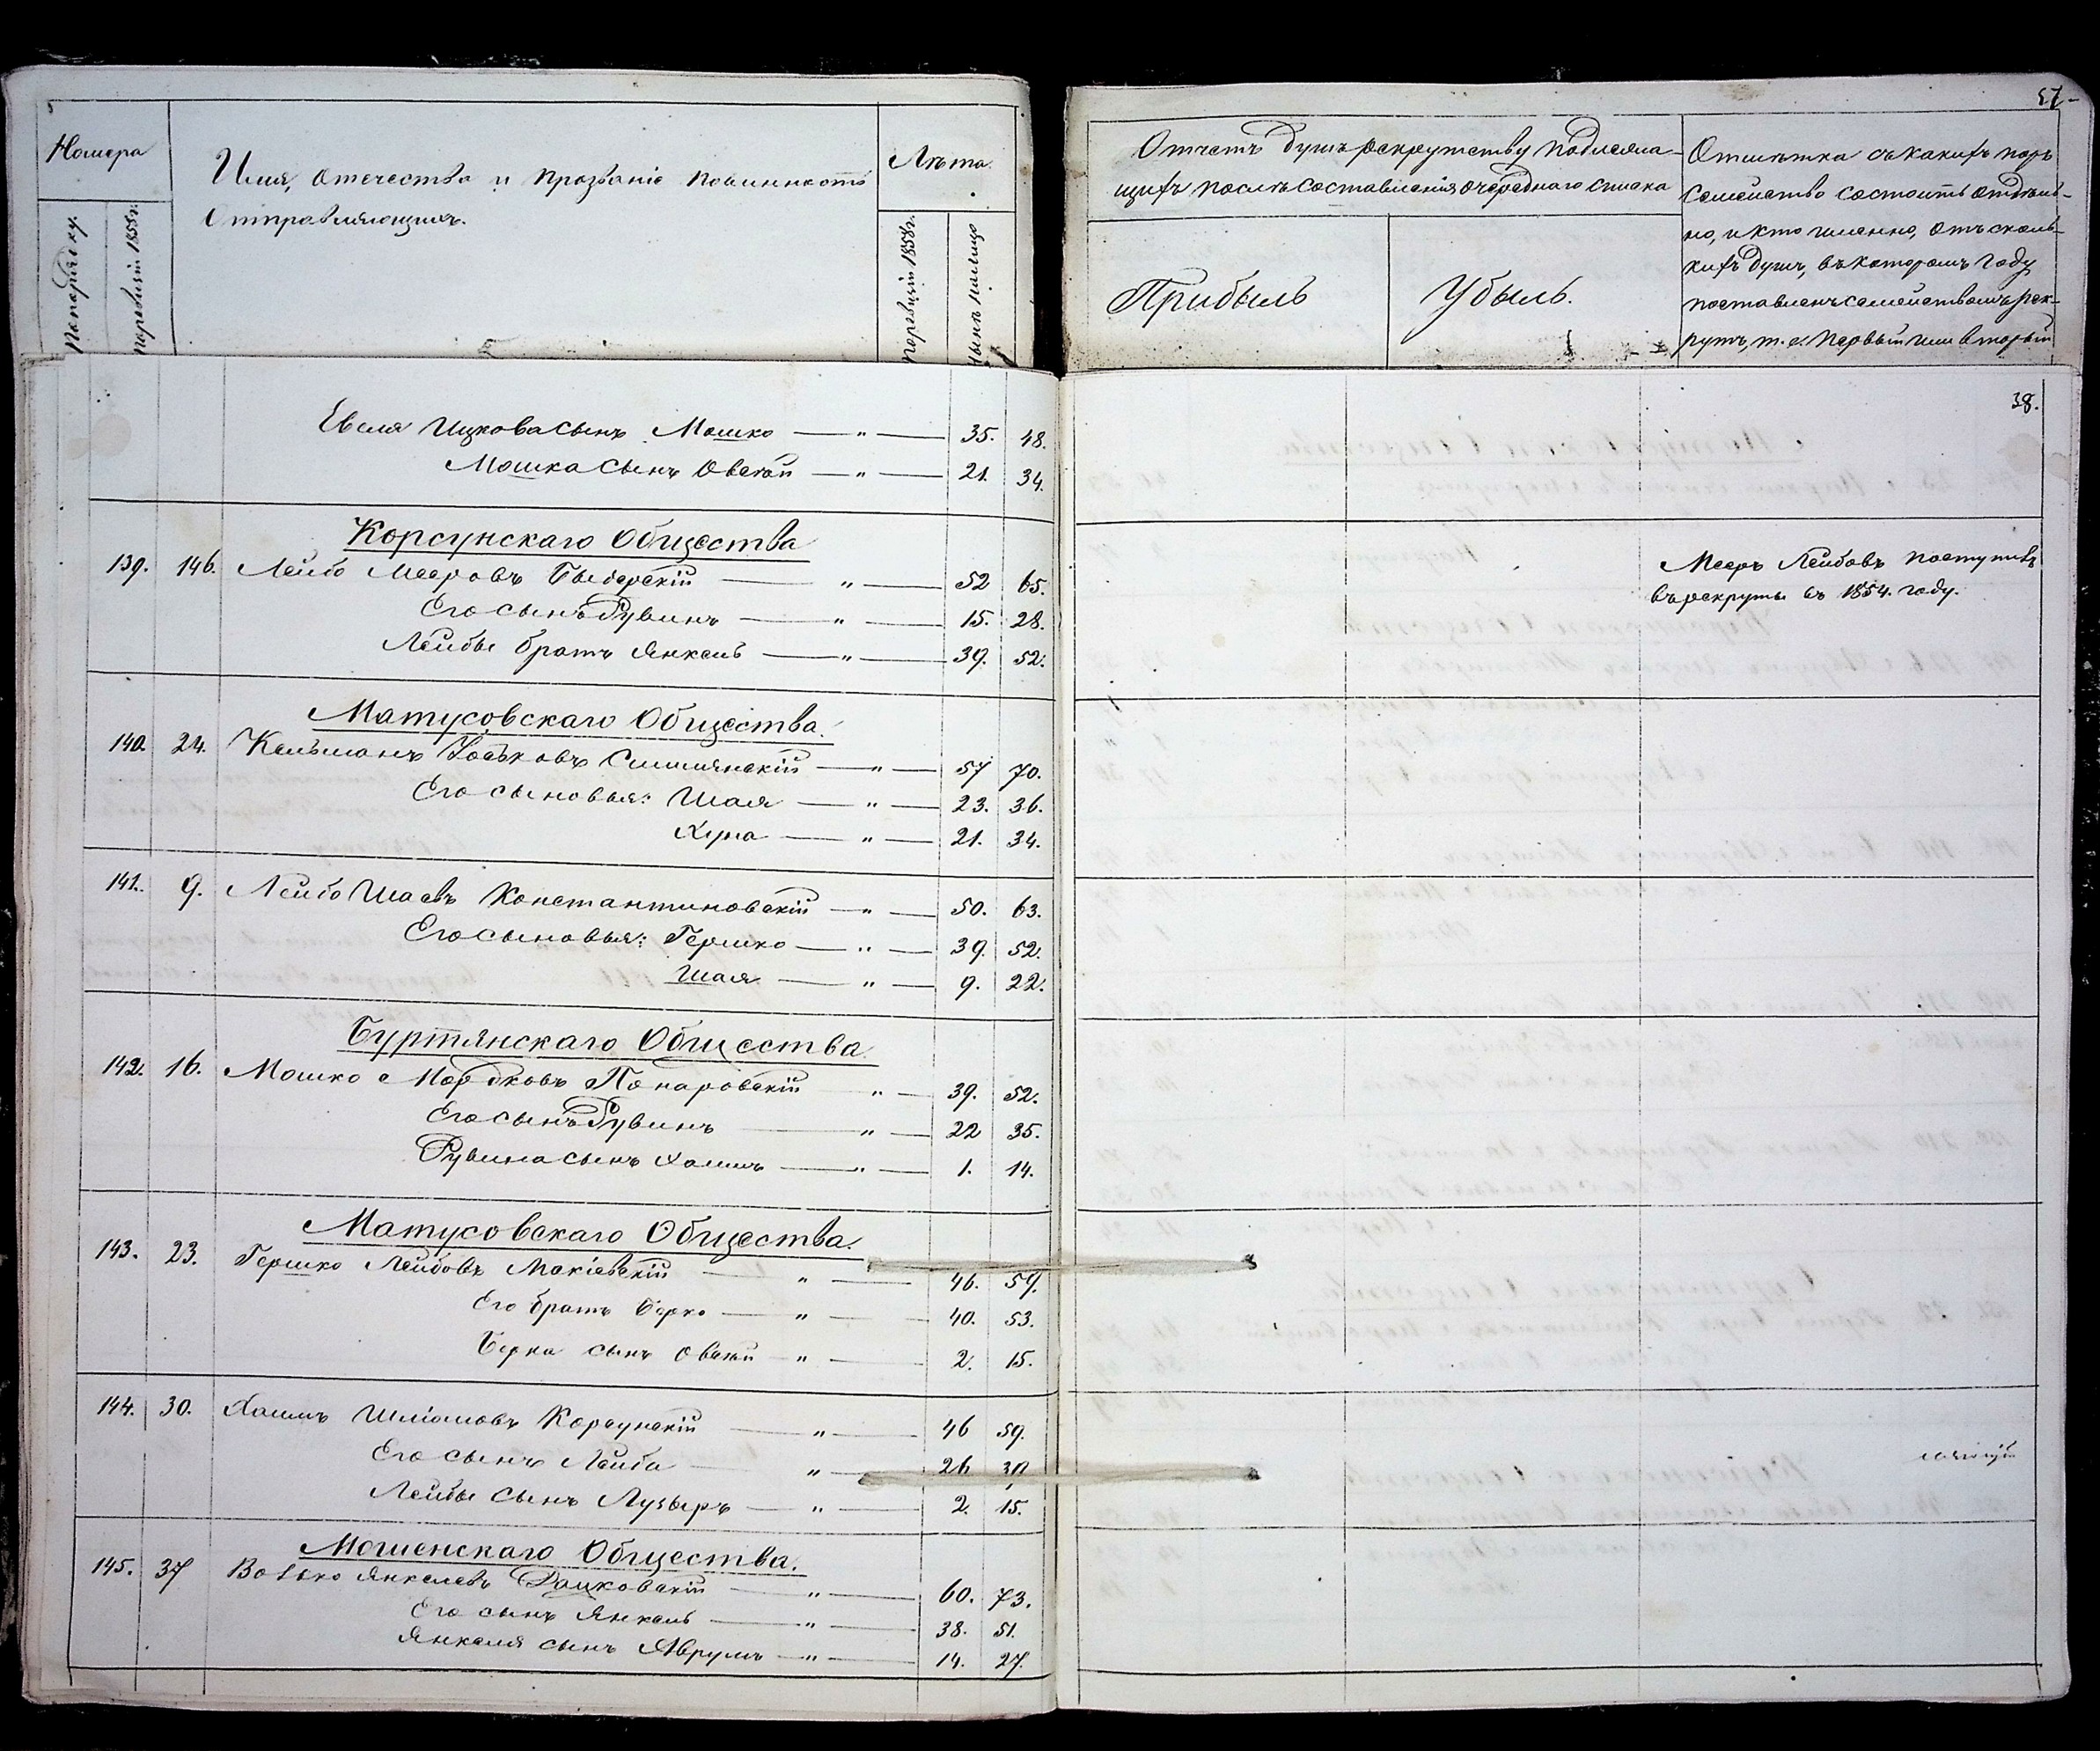 Номера
По порядку
по ревизіи 1858 г.
Имя, отечество и прозваніе повинность
отправляющихъ.
Лѣта
По ревизіи 1858 г.
Нынѣ
Евеля Ицкова сынъ Мошко — " — 35. 48.
Мошка сынъ Овсѣй — " — 21. 34.
Корсунскаго Общества
139. 146. Лейба Мееровъ — " — 52 65.
Его сынъ Рувинъ — " — 15. 28.
Лейбы братъ Янкель — " — 39. 52.
Матусовскаго Общества.
140. 24. Кельманъ Іоськовъ Смилянскій — " — 57 70.
Его сыновья: Шая — " — 23. 36.
Хуна — " — 21. 34.
141. 9. Лейба Шаевъ Константиновскій — " — 50. 63.
Его сыновья: Гершко — " — 39. 52.
Шая — " — 9. 22.
Буртянскаго Общества
142. 16. Мошко Мордковъ Понаровскій " — 39. 52.
Его сынъ Рувинъ — " — 22 35.
Рувина сынъ Хаимъ — " — 1. 14.
Матусовскаго Общества.
143. 23. Гершко Лейбовъ Макіевскій — " — 46. 59.
Его братъ Берко — " — 40. 53.
Берка сынъ Овсѣй — " — 2. 15.
144. 30. Хаимъ Шліомовъ Корсунскій — " — 46 59.
Его сынъ Лейба — " — 26 39
Лейбы сынъ Лузыръ — " — 2. 15.
Мошенскаго Общества.
145. 37 Волько Янкелевъ Рашковскій — " — 60. 73.
Его сынъ Янкель — " — 38. 51.
Янкеля сынъ Аврумъ — " — 14. 27.
57
Отчетъ душъ рекрутству подлежа-
щихъ послѣ составленія очереднаго списка
Прибыль
Убыль.
Отмѣтка съ какихъ поръ
семейство состоитъ отдѣль-
но, и кто именно, отъ сколь-
кихъ душъ, въ которомъ году
поставленъ семействомъ рек-
рутъ, т. е. первый или вторый
38.
Мееръ Лейбовъ поступилъ
въ рекруты въ 1854. году.